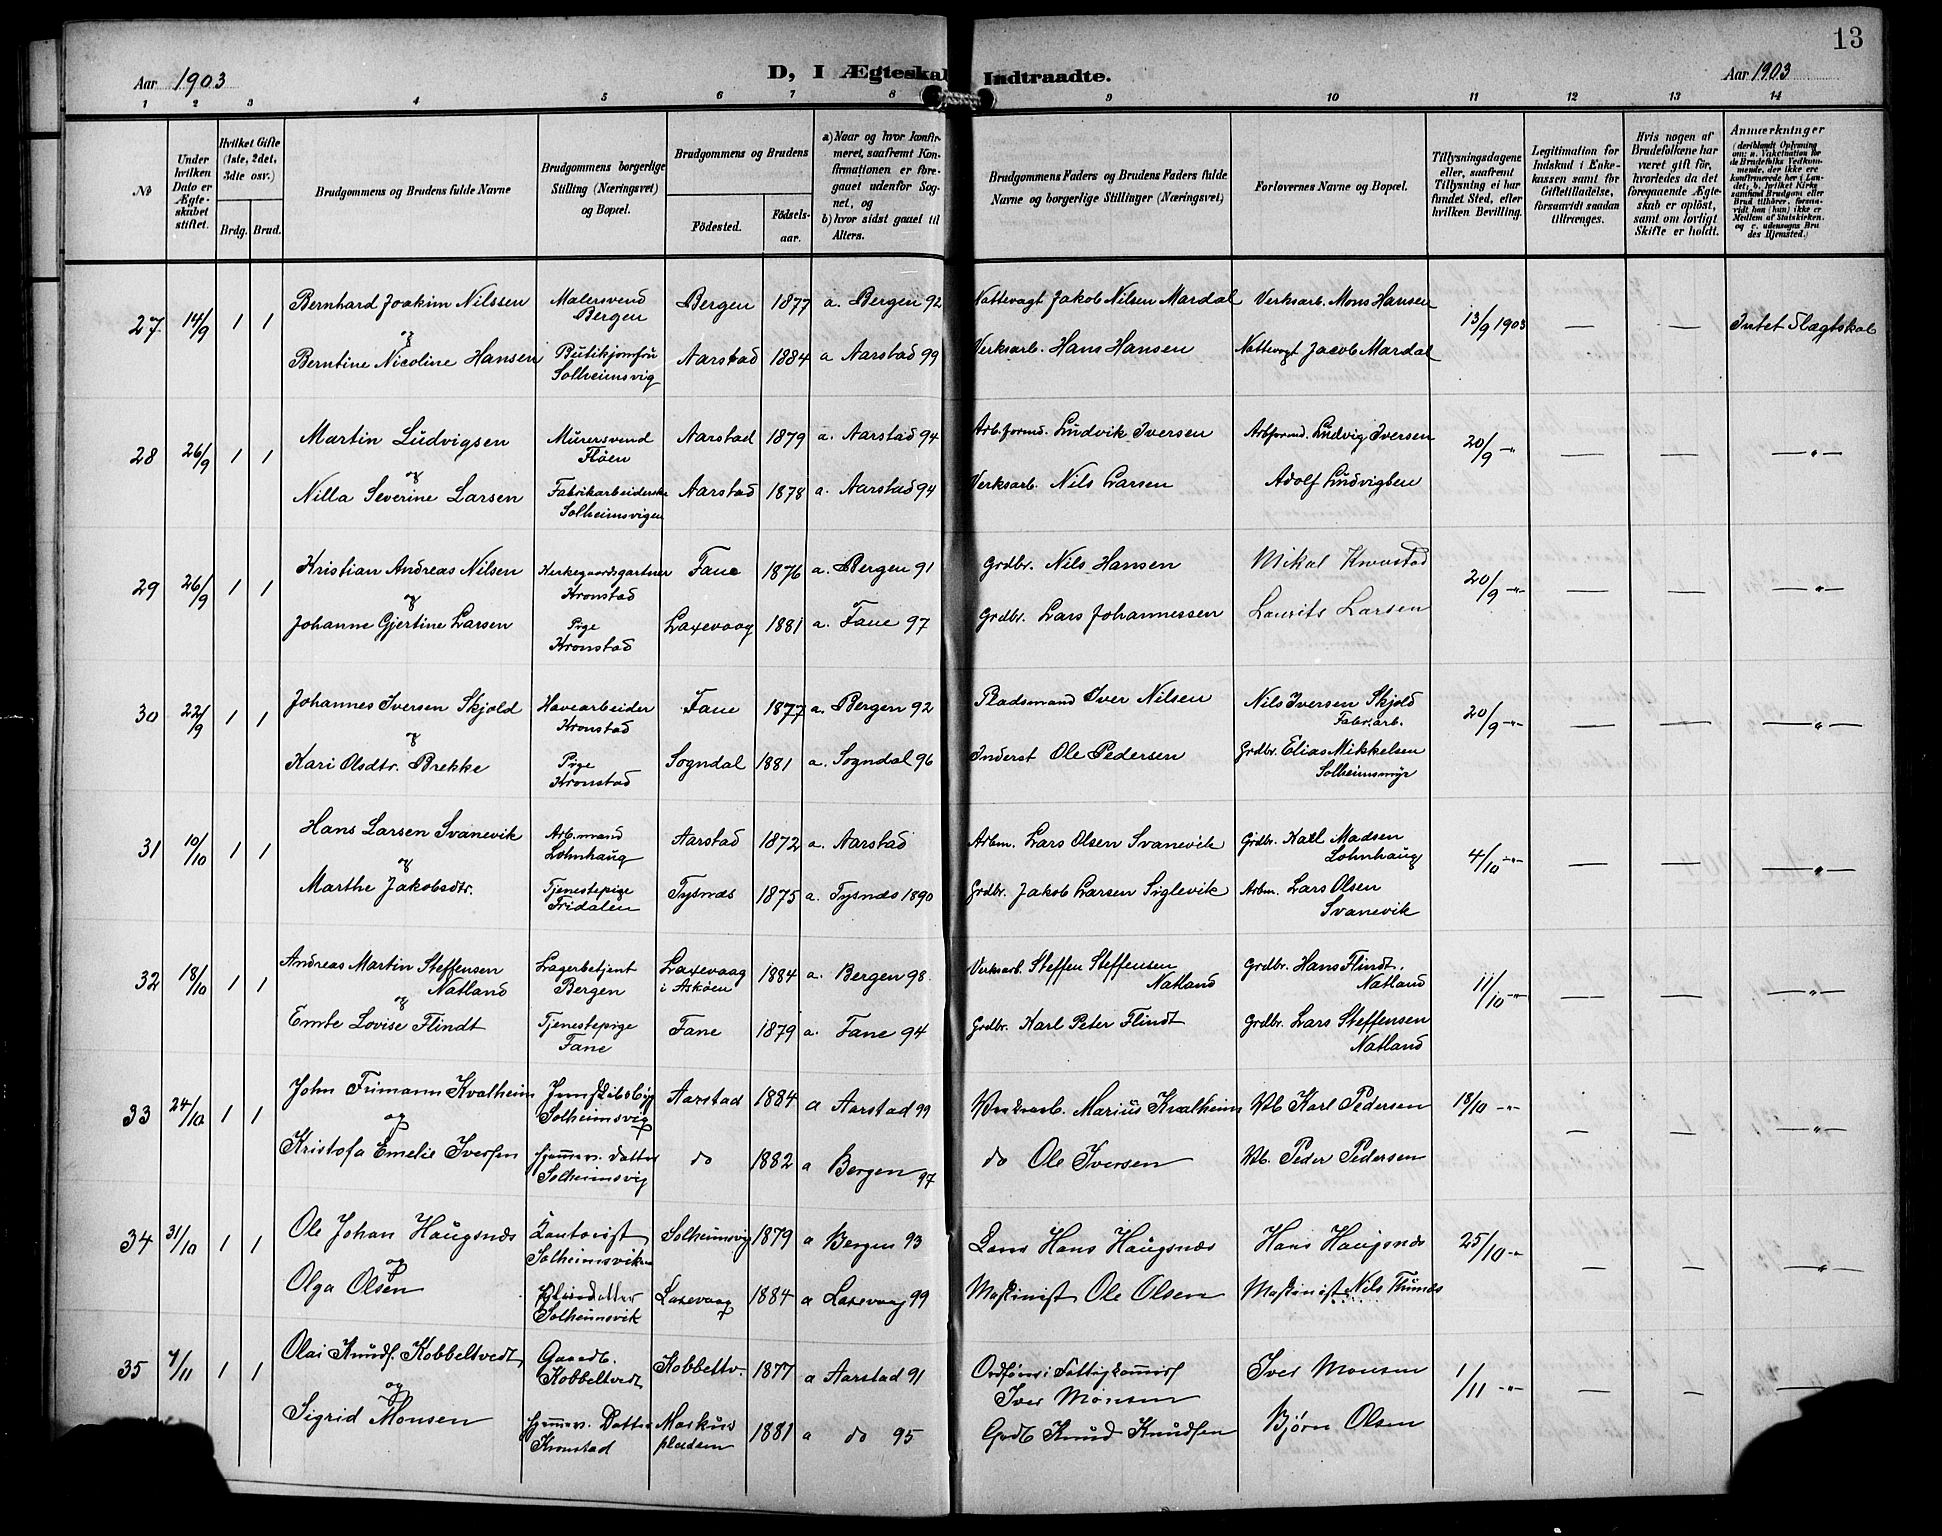 13
Aar 1903
D, I Ægteskab Indtraadte.
Aar 1903
1 2 3 4 5 6 7 8 9 10 11 12 13 14
No
Under hvilken Dato er Ægteskabet stiftet.
Hvilket Gifte (1ste, 2det, 3die osv.)
Brdg. Brud.
Brudgommens og Brudens fulde Navne
Brudgommens borgerlige Stilling (Næringsvei) og Bopæl.
Brudgommens og Brudens
Födested.
Födselsaar.
a) Naar og hvor konfirmeret, saafremt Konfirmationen er foregaaet udenfor Sognet, og
b) hvor sidst gaaet til Alters.
Brudgommens Faders og Brudens Faders fulde Navne og borgerlige Stillinger (Næringsvei)
Forlovernes Navne og Bopæl.
Tillysningsdagene eller, saafremt Tillysning ei har fundet Sted, efter hvilken Bevilling.
Legitimation for Indskud i Enkekassen samt for Giftetilladelse, forsaavidt saadan tiltrænges.
Hvis nogen af Brudefolkene har været gift för, hvorledes da det foregaaende Ægteskab er oplöst, samt om lovligt Skifte er holdt.
Anmærkninger
(deriblandt Oplysning om: a. Vakcination for de Brudefolks Vedkommende, der ikke ere konfirmerede her i Landet; b. hvilket Kirkesamfund Brudgom eller Brud tilhörer, forsaavidt han (hun) ikke er Medlem af Statskirken. og c. udensogns Brudes Hjemsted.)
27 14/9 1 1 Bernhard Joakim Nilssen Malersvend Bergen Bergen 1877 a. Bergen 92 Nattevagt Jakob Nilsen Mardal Verksarb. Mons Hansen 13/9 1903 — — Intet Slægtskab
og
Berntine Nicoline Hansen Butikjomfru Solheimsvig Aarstad 1884 a Aarstad 99 Verksarb. Hans Hansen Nattevagt Jacob Mardal
28 26/9 1 1 Martin Ludvigsen Murersvend Fløen Aarstad 1879 a. Aarstad 94 Arb.formd. Ludvik Iversen Arbformd. Ludvig Iversen 20/9 -"- — — —"—
og
Nilla Severine Larsen Fabrikarbeiderske Solheimsvigen Aarstad 1878 a. Aarstad 94 Verksarb. Nils Larsen Adolf Ludvigsen
29 26/9 1 1 Kristian Andreas Nilsen Kirkegaardsgartner Kronstad Fane 1876 a. Bergen 91 Grdbr. Nils Hansen Mikal 20/9 -"- — — —"—
og
Johanne Gjertine Larsen Pige Kronstad Laxevaag 1881 a. Fane 97 Grdbr. Lars Johannessen Laurits Larsen
30 22/9 1 1 Johannes Iversen Skjold Havearbeider Kronstad Fane 1877 a. Bergen 92 Pladsmand Iver Nilsen Nils Iversen Skjold Fabr.arb. 20/9 -"- — — —"—
og
Kari Olsdtr. Brekke Pige Kronstad Sogndal 1881 a. Sogndal 96 Inderst Ole Pedersen Grdbr. Elias Mikkelsen Solheimsmyr
31 10/10 1 1 Hans Larsen Svanevik Arb.mand Lohnhaug Aarstad 1872 a. Aarstad Arbm. Lars Olsen Svanevik Grdbr. Karl Madsen Lohnhaug 4/10 -"- — — —"—
og
Marthe Jakobsdtr. Tjenestepige Fridalen Tysnæs 1875 a. Tysnæs 1890 Grdbr. Jakob Larsen Siglevik Arbm. Lars Olsen Svanevik
32 18/10 1 1 Andreas Martin Steffensen Natland Lagerbetjent Bergen Laxevaag i Askøen 1884 a. Bergen 98. Verksarb. Steffen Steffensen Natland Grdbr. Hans Flindt. Natland 11/10 -"- — — —"—
og
Emte Lovise Flindt Tjenestepige Fane Fane 1879 a. Fane 94 Grdbr. Karl Peter Flindt Grdbr. Lars Steffensen Natland
33 24/10 1 1 John Frimann Kvalheim Solheimsvig Aarstad 1884 a Aarstad 99 Marius Kvalheim Karl Pedersen 18/10 -"- — — —"—
og
Kristofa Emelie Iversen Hjemmev. Datter Solheimsvig do 1882 a Bergen 97 do Ole Iversen Peder Pedersen
34 31/10 1 1 Ole Johan Haugsnæs Kontorist Solheimsviken Solheimsvig 1879 a Bergen 93 Hans Haugsnæs Hans Haugsnæs 25/10 -"- — — —"—
og
Olga Olsen Solheimsvik Laxevaag 1884 a Laxevaag 99 Maskinist Ole Olsen Maskinist Nils Thunæs
35 7/11 1 1 Olai Knuds. Kobbeltvedt Gaardb. Kobbeltvedt Kobbeltv. 1877 a Aarstad 91 Iver Monsen Iver Monsen 1/11 -"- — —
og
Sigrid Monsen Hjemmev. Datter Kronstad Markus pladsen 1881 a do 95 Grdb Knud Knudsen Bjørn Olsen